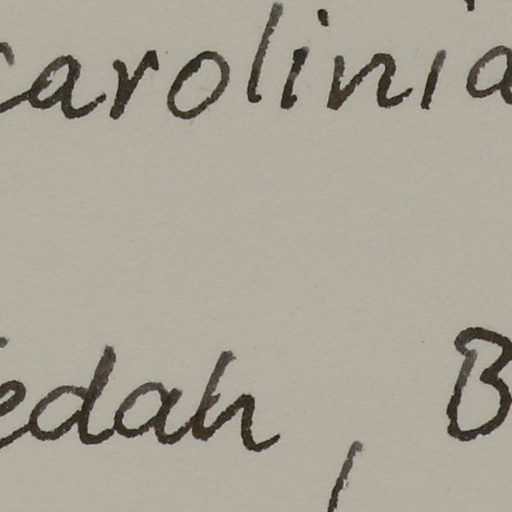 carolinia
edah, B